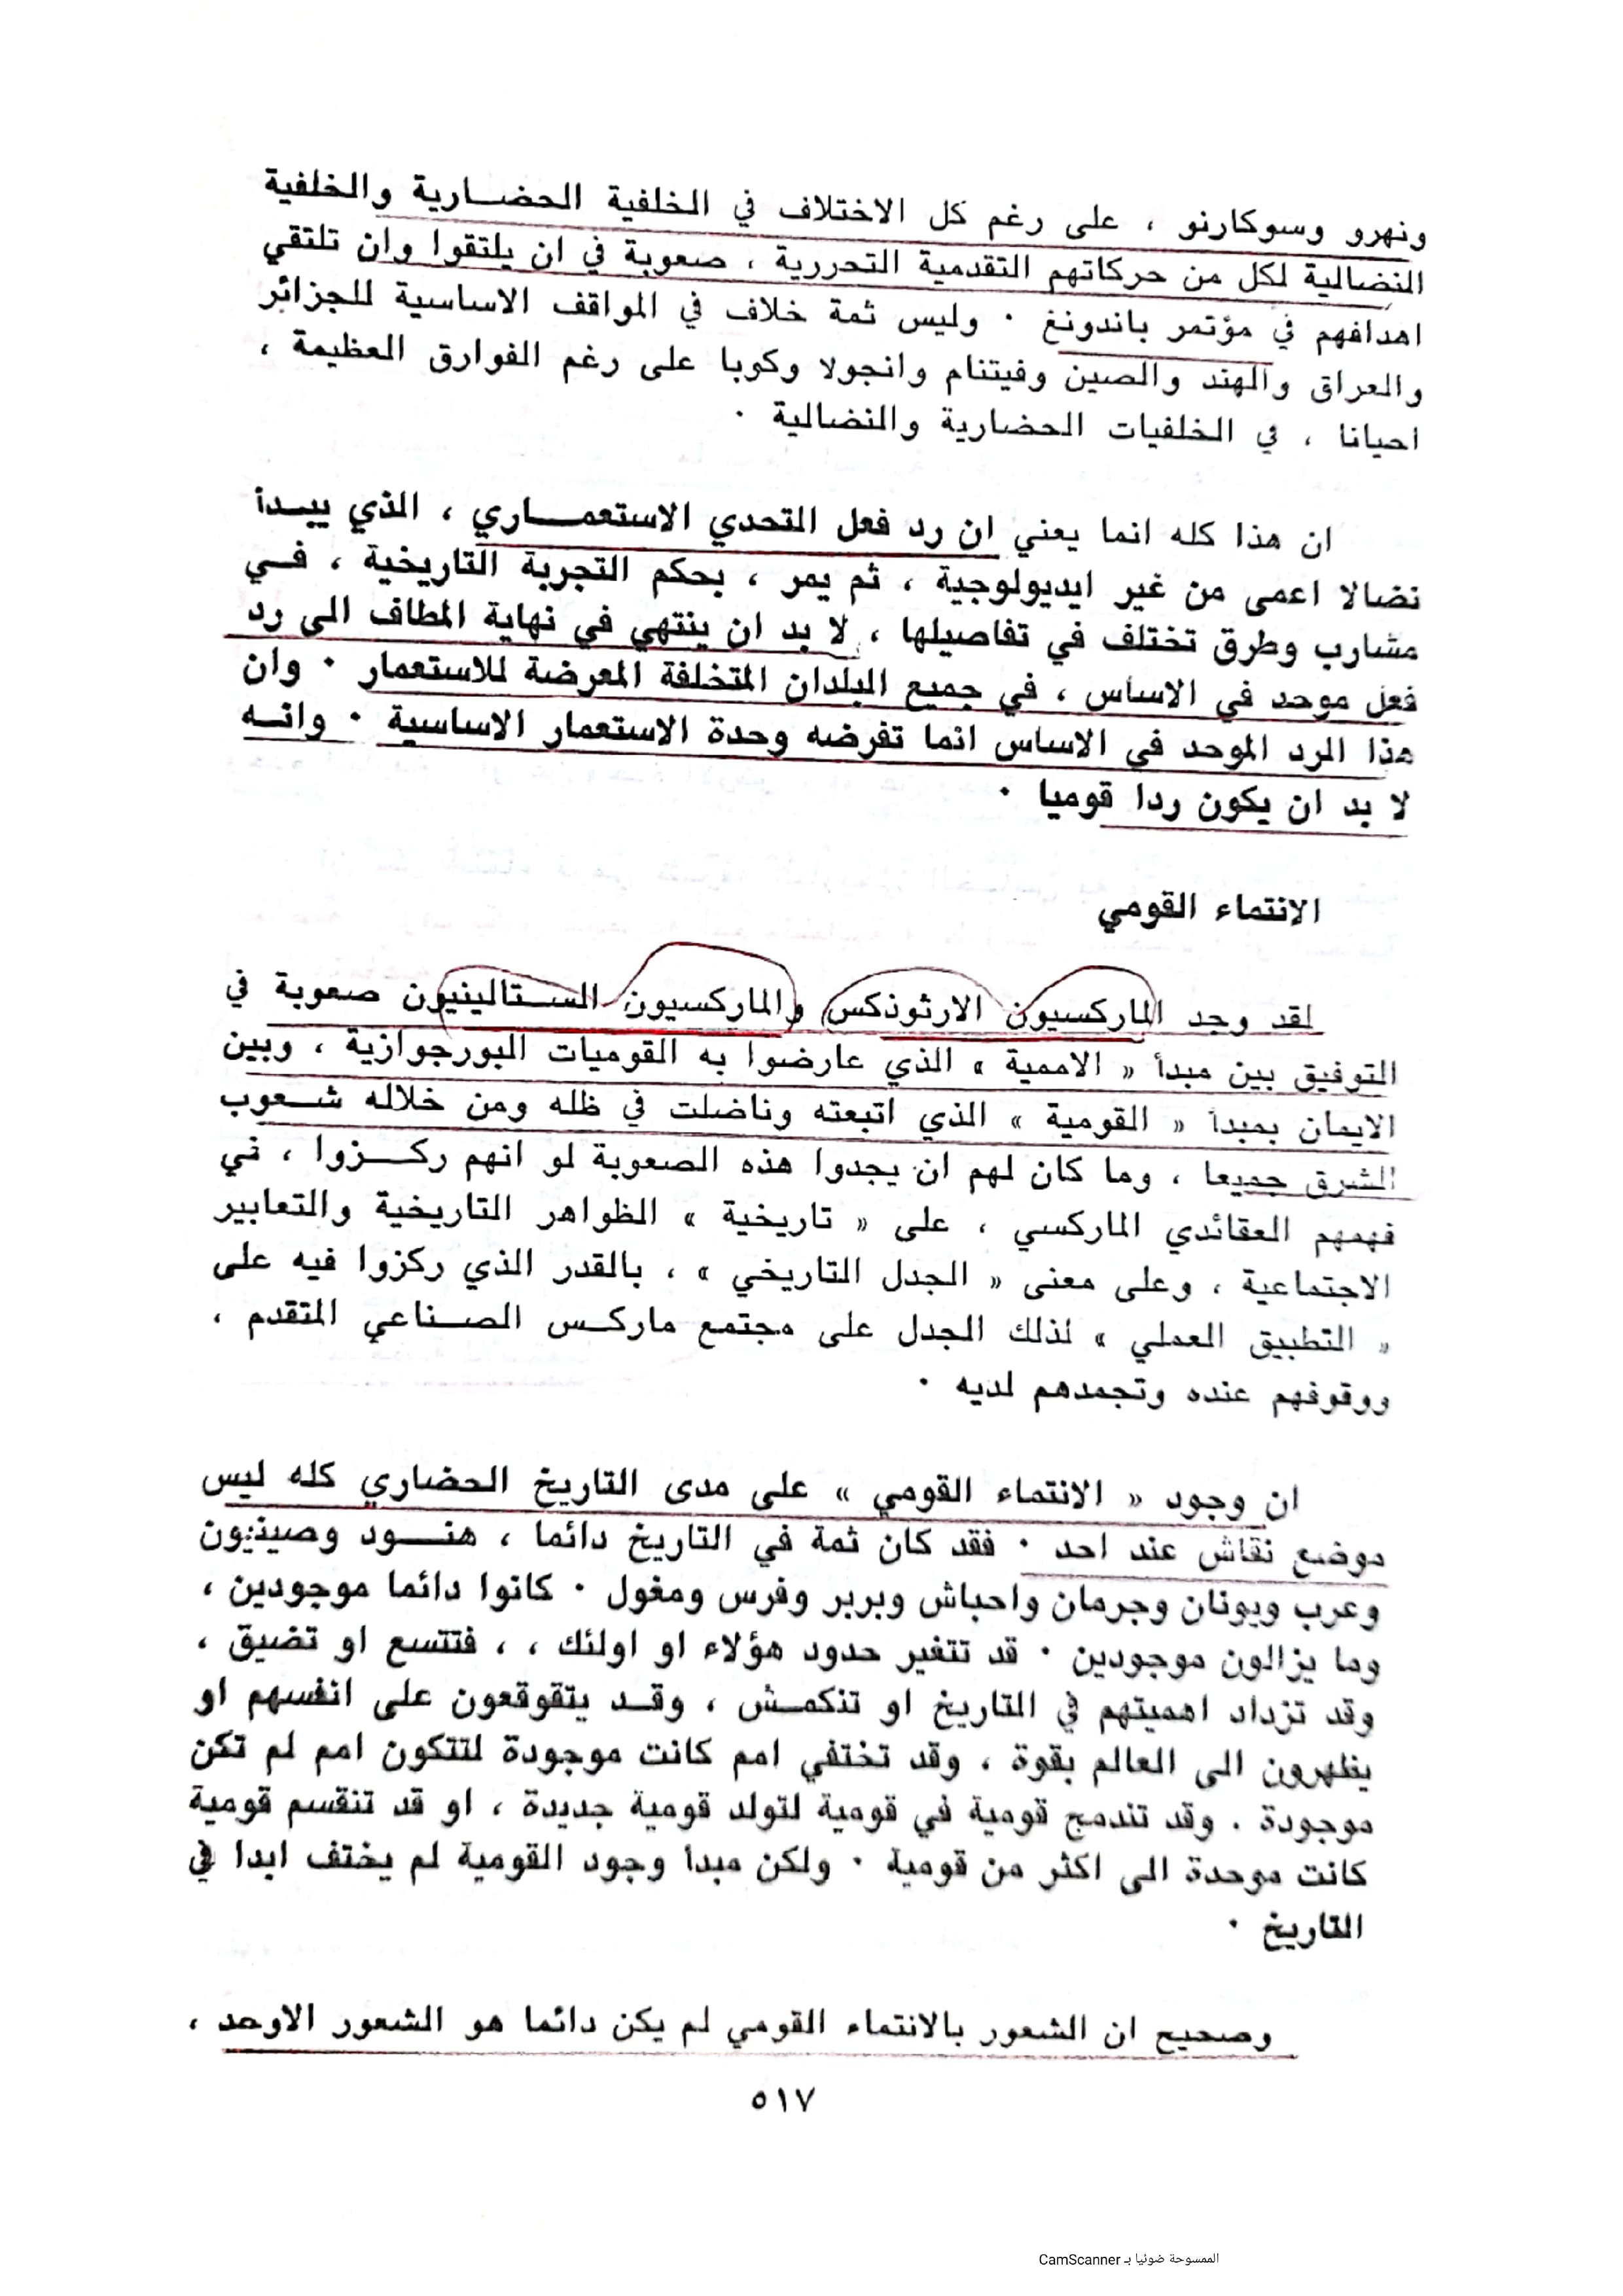 ونهرو وسوكارنو ، على رغم كل الاختلاف في الخلفية الحضـارية والخلفية
النضالية لكل من حركاتهم التقدمية التحررية ، صعوبة في ان يلتقوا وان تلتقي
اهدافهم في مؤتمر باندونغ · وليس ثمة خلاف في المواقف الاساسية للجزائر
والعراق والهند والصين وفيتنام وانجولا وكوبا على رغم الفوارق العظيمة ،
احيانا ، في الخلفيات الحضارية والنضالية ·
ان هذا كله انما يعني ان رد فعل التحدي الاستعمـــاري ، الذي يبــدأ
نضالا اعمى من غير ايديولوجية ، ثم يمر ، بحكم التجربة التاريخية ، فــي
مشارب وطرق تختلف في تفاصيلها ، لا بد ان ينتهي في نهاية المطاف الى رد
فعل موحد في الاساس ، في جميع البلدان المتخلفة المعرضة للاستعمار · وان
هذا الرد الموحد في الاساس انما تفرضه وحدة الاستعمار الاساسية · وانــه
لا بد ان يكون ردا قوميا ·
الانتماء القومي
لقد وجد الماركسيون الارثوذكس والماركسيون الســتالينيون صعوبة في
التوفيق بين مبدأ « الاممية » الذي عارضوا به القوميات البورجوازية ، وبين
الايمان بمبدأ « القومية » الذي اتبعته وناضلت في ظله ومن خلاله شــعوب
الشرق جميعا ، وما كان لهم ان يجدوا هذه الصعوبة لو انهم ركـــزوا ، في
فهمهم العقائدي الماركسي ، على « تاريخية » الظواهر التاريخية والتعابير
الاجتماعية ، وعلى معنى « الجدل التاريخي » ، بالقدر الذي ركزوا فيه على
« التطبيق العملي » لذلك الجدل على مجتمع ماركــس الصــناعي المتقدم ،
ووقوفهم عنده وتجمدهم لديه ·
ان وجود « الانتماء القومي » على مدى التاريخ الحضاري كله ليس
موضع نقاش عند احد · فقد كان ثمة في التاريخ دائما ، هنـــود وصينيون
وعرب ويونان وجرمان واحباش وبربر وفرس ومغول · كانوا دائما موجودين ،
وما يزالون موجودين · قد تتغير حدود هؤلاء او اولئك ، ، فتتسع او تضيق ،
وقد تزداد اهميتهم في التاريخ او تنكمــش ، وقــد يتقوقعون على انفسهم او
يظهرون الى العالم بقوة ، وقد تختفي امم كانت موجودة لتتكون امم لم تكن
موجودة . وقد تندمج قومية في قومية لتولد قومية جديدة ، او قد تنقسم قومية
كانت موحدة الى اكثر من قومية · ولكن مبدأ وجود القومية لم يختف ابدا في
التاريخ ·
وصحيح ان الشعور بالانتماء القومي لم يكن دائما هو الشعور الاوحد ،
٥١٧
الممسوحة ضوئيا بـ CamScanner